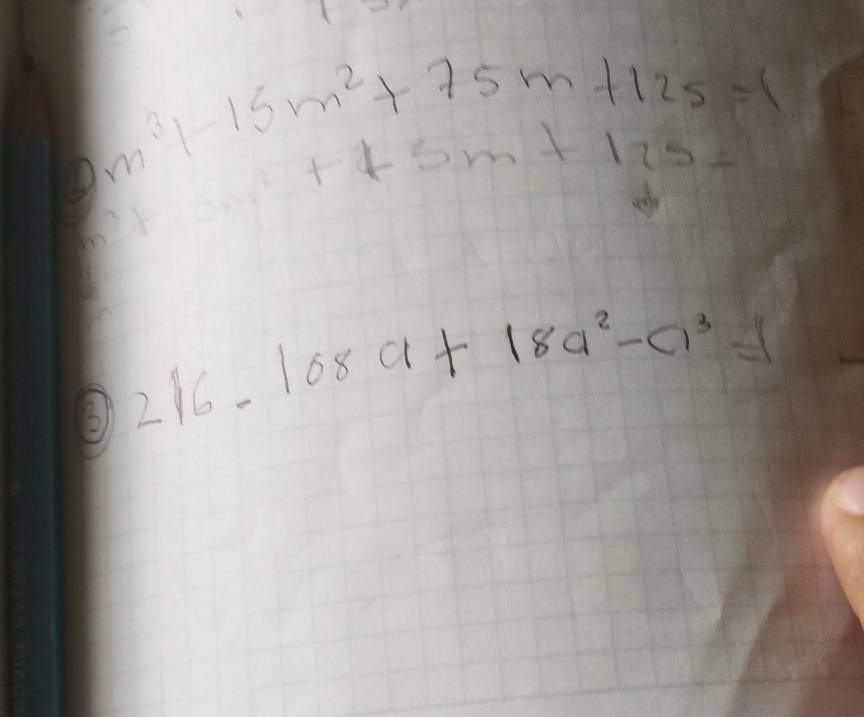 ② m³ + 15m² + 75m + 125 =
+ 15m + 125 =
m³ +
③ 216 - 108a + 18a² - a³ =